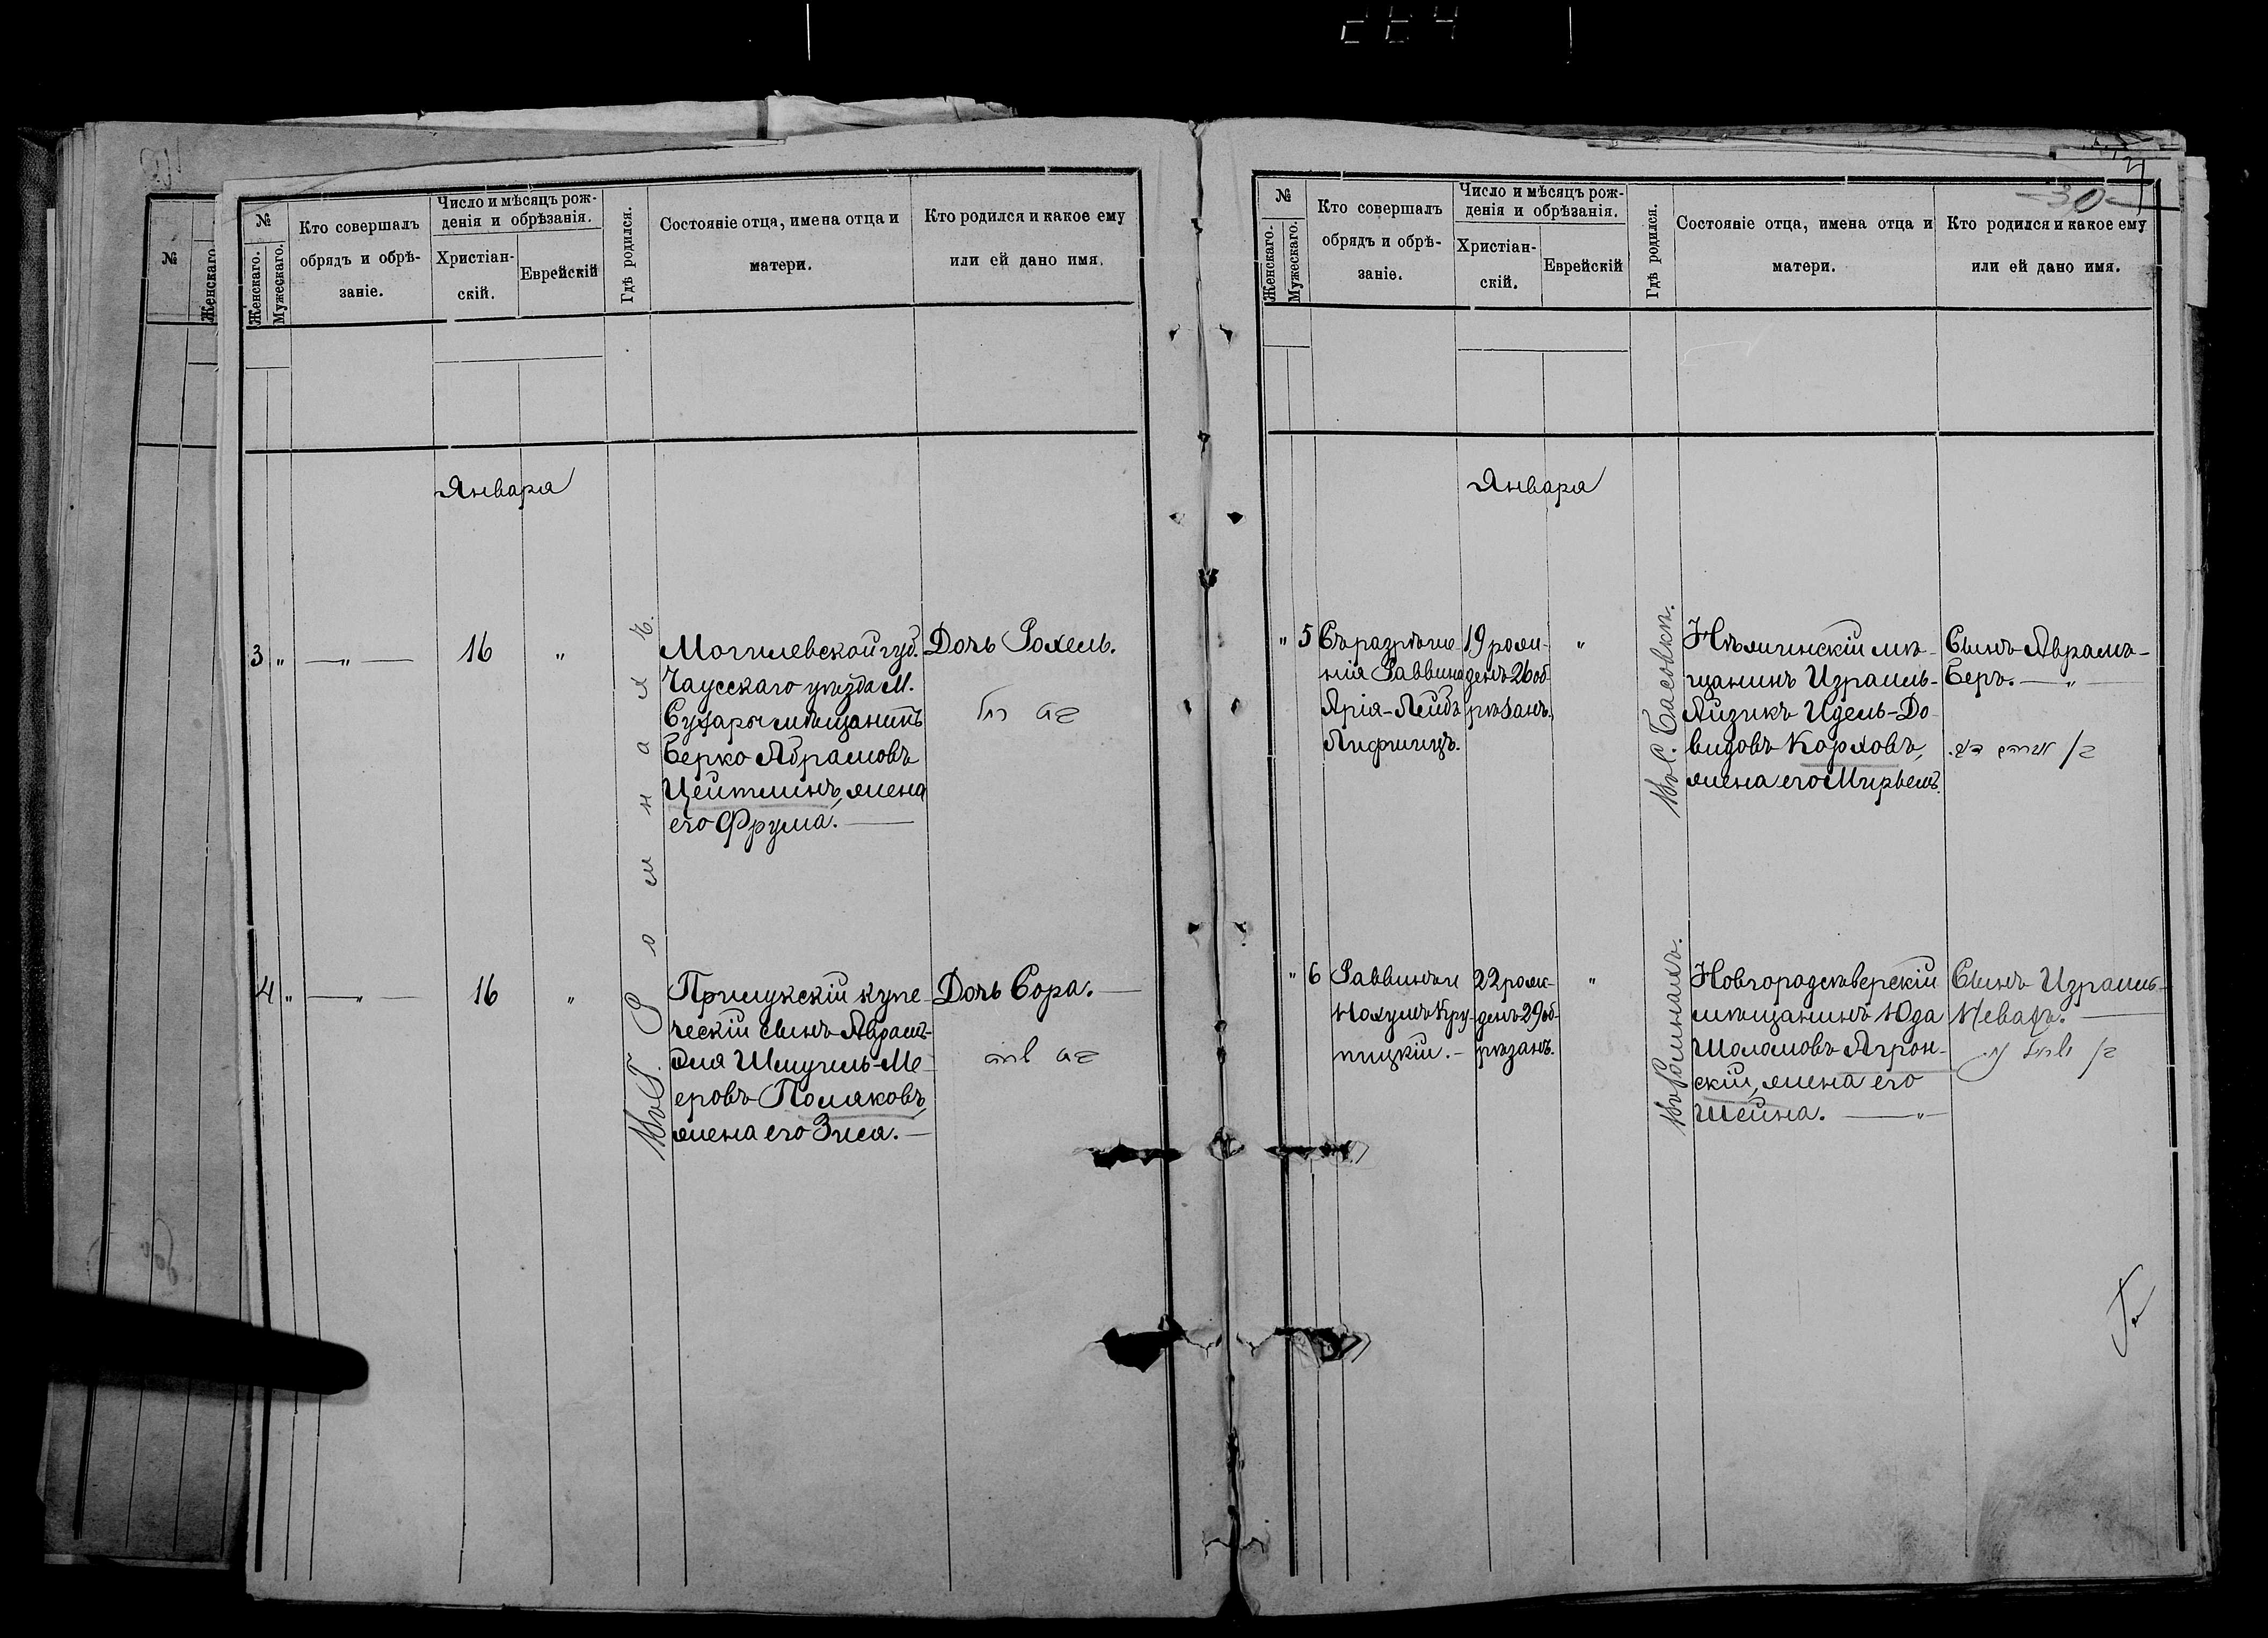 264
№
Женскаго.
№
Женскаго.
Мужескаго.
Кто совершалъ
обрядъ и обрѣ-
заніе.
Число и мѣсяцъ рож-
денія и обрѣзанія.
Христіан-
скій.
Еврейскій
Гдѣ родился.
Состояніе отца, имена отца и
матери.
Кто родился и какое ему
или ей дано имя.
Января
3 " —"— 16 "
Могилевской губ.
Чаусскаго уѣзда М.
Сухары мѣщанинъ
Берко Абрамовъ
Цейтлинъ, жена
его Фрума. —
Дочь Рохель.
בת רחל
Въ Г. Ромнахъ.
4 " —"— 16 "
Прилукскій купе-
ческій сынъ Аврамъ-
Зля Шмуиль-Ме-
еровъ Поляковъ,
жена его Зися. —
Дочь Сора. —
בת שרה
30
№
Женскаго.
Мужескаго.
Кто совершалъ
обрядъ и обрѣ-
заніе.
Число и мѣсяцъ рож-
денія и обрѣзанія.
Христіан-
скій.
Еврейскій
Гдѣ родился.
Состояніе отца, имена отца и
матери.
Кто родился и какое ему
или ей дано имя.
Января
" 5
Съ разрѣше-
нія Раввина
Арія-Лейбъ
Лифшицъ.
19 рож-
денъ 26 об-
рѣзанъ.
"
Въ С. Басовкѣ.
Нѣжинскій мѣ-
щанинъ Израиль-
Айзикъ Идель-До-
видовъ Корховъ,
жена его Мирьемъ.
Сынъ Аврамъ-
Беръ. —"—
" 6
Раввинъ и
Нохумъ Кру-
пицкій. —
22 рож-
денъ 29 об-
рѣзанъ.
"
Въ Ромнахъ.
Новгородсѣверскій
мѣщанинъ Юда
Шоломовъ Агрон-
скій, жена его
Шейна. —"—
Сынъ Израиль-